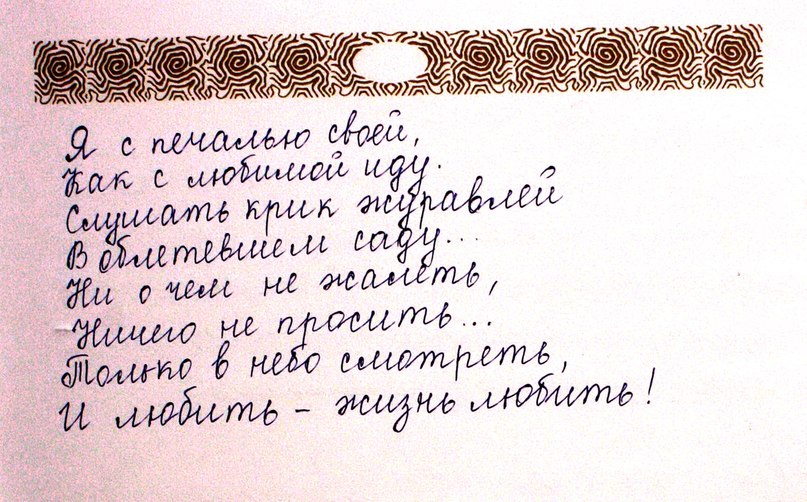 Я с печалью своей,
Как с любимой иду.
Слушать крик журавлей
В облетевшем саду...
Ни о чем не жалеть,
Ничего не просить...
Только в небо смотреть,
И любить – жизнь любить!